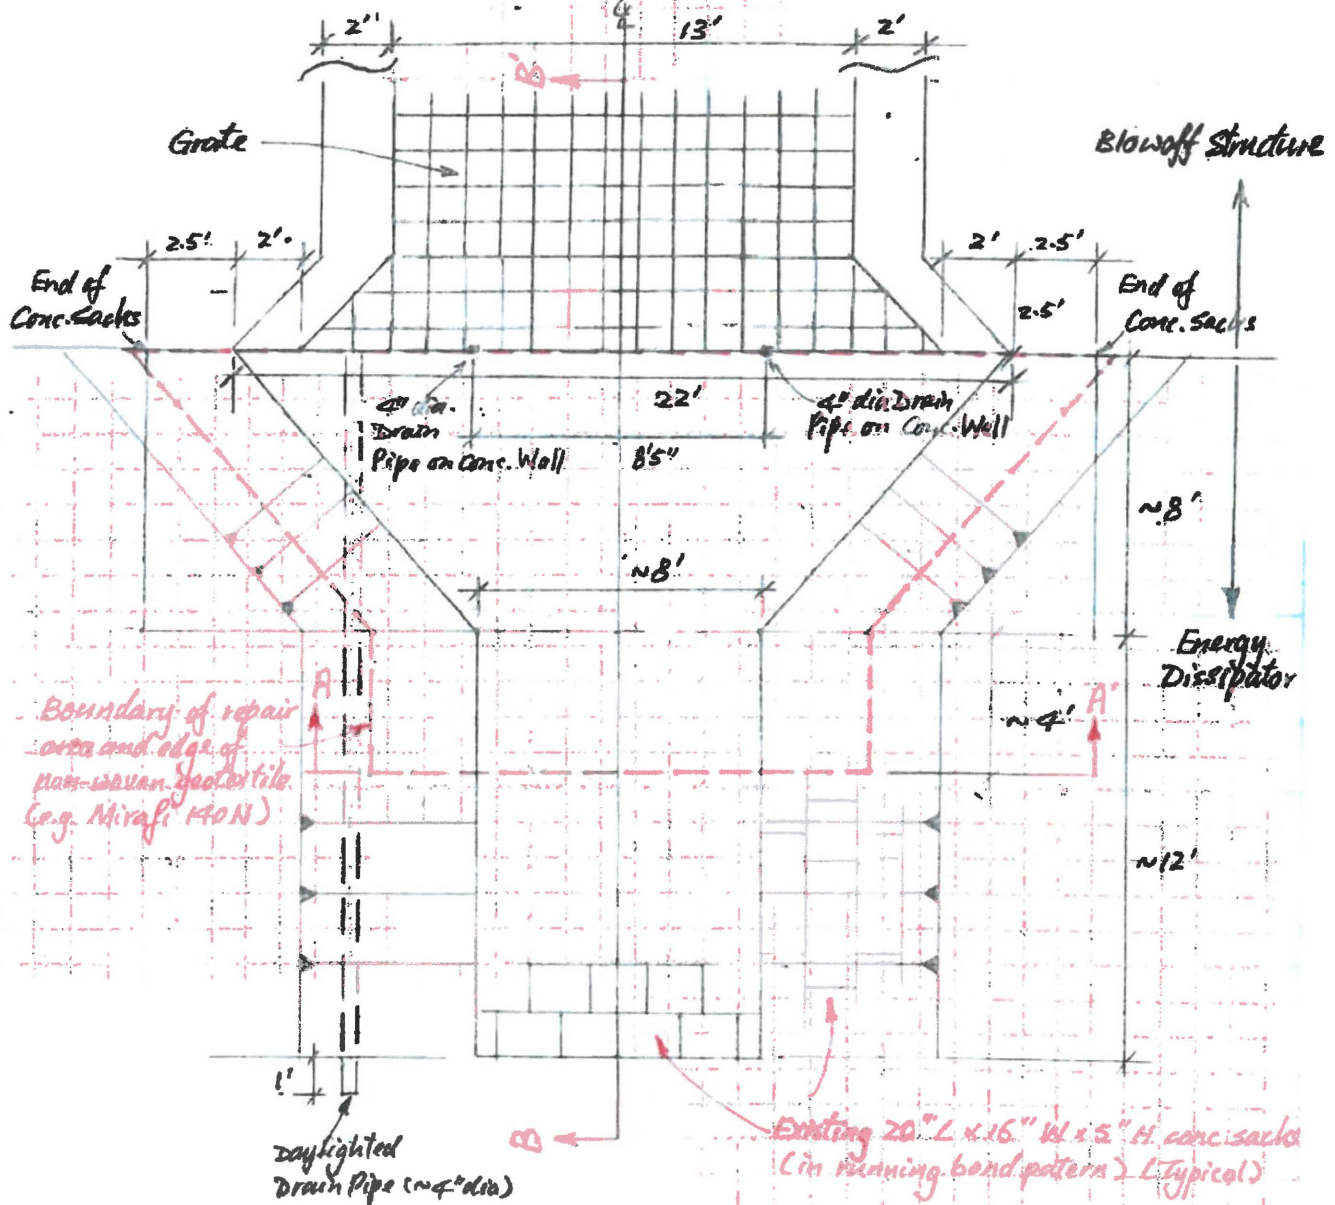 ℄
2' 13' 2'
B'
Grate
Blowoff Structure
2.5' 2' 2' 2.5'
End of
Conc. Sacks
2.5'
End of
Conc. Sacks
22'
4" dia.
Drain
Pipe on Conc. Wall
4" dia Drain
Pipe on Conc. Wall
8'5"
~8'
~8'
Energy
Dissipator
A
A'
~4'
Boundary of repair
area and edge of
non-woven geotextile
(e.g. Mirafi 140N)
~12'
1'
B
Daylighted
Drain Pipe (~4" dia)
Existing 20" L x 16" W x 5" H conc. sacks
(in running bond patern) (Typical)